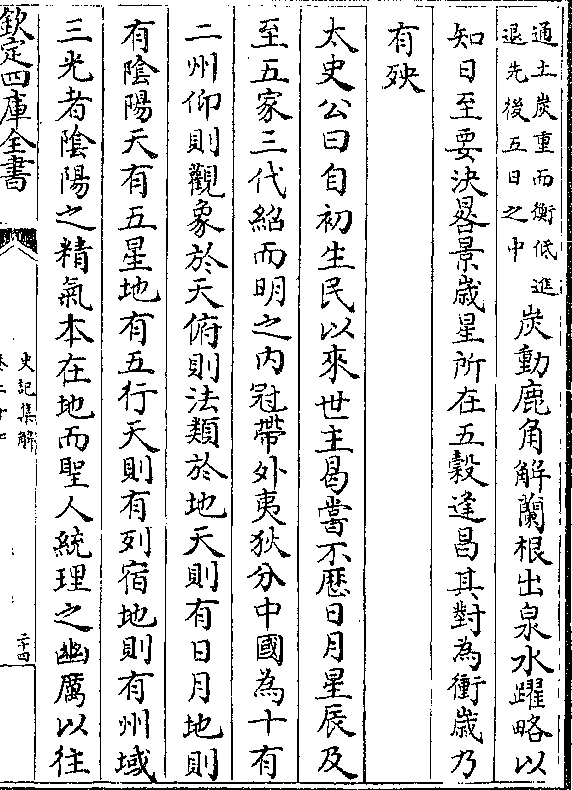 通土炭重而衡低進
退先後五日之中
炭動鹿角解蘭根出泉水躍略以
知日至要決晷景歲星所在五穀逢昌其對為衝歲乃
有殃
太史公曰自初生民以來世主曷嘗不厯日月星辰及
至五家三代紹而明之内冠帶外夷狄分中國為十有
二州仰則觀象於天俯則法類於地天則有日月地則
有陰陽天有五星地有五行天則有列宿地則有州域
三光者陰陽之精氣本在地而聖人統理之幽厲以往
欽定四庫全書
史記集解
二十四